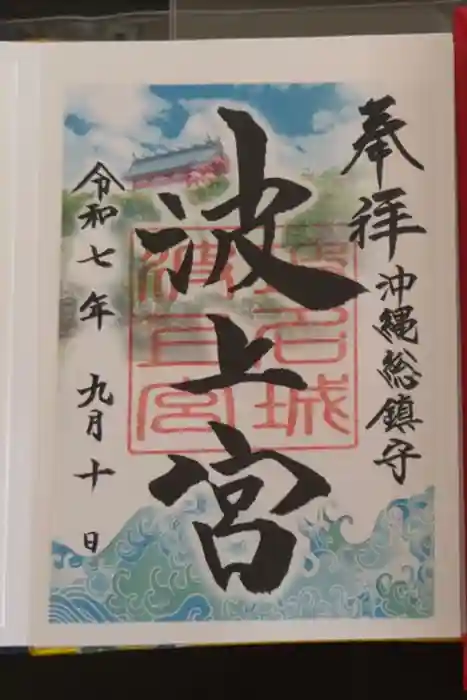 奉拝
沖縄総鎮守
波上宮
令和七年 九月十日